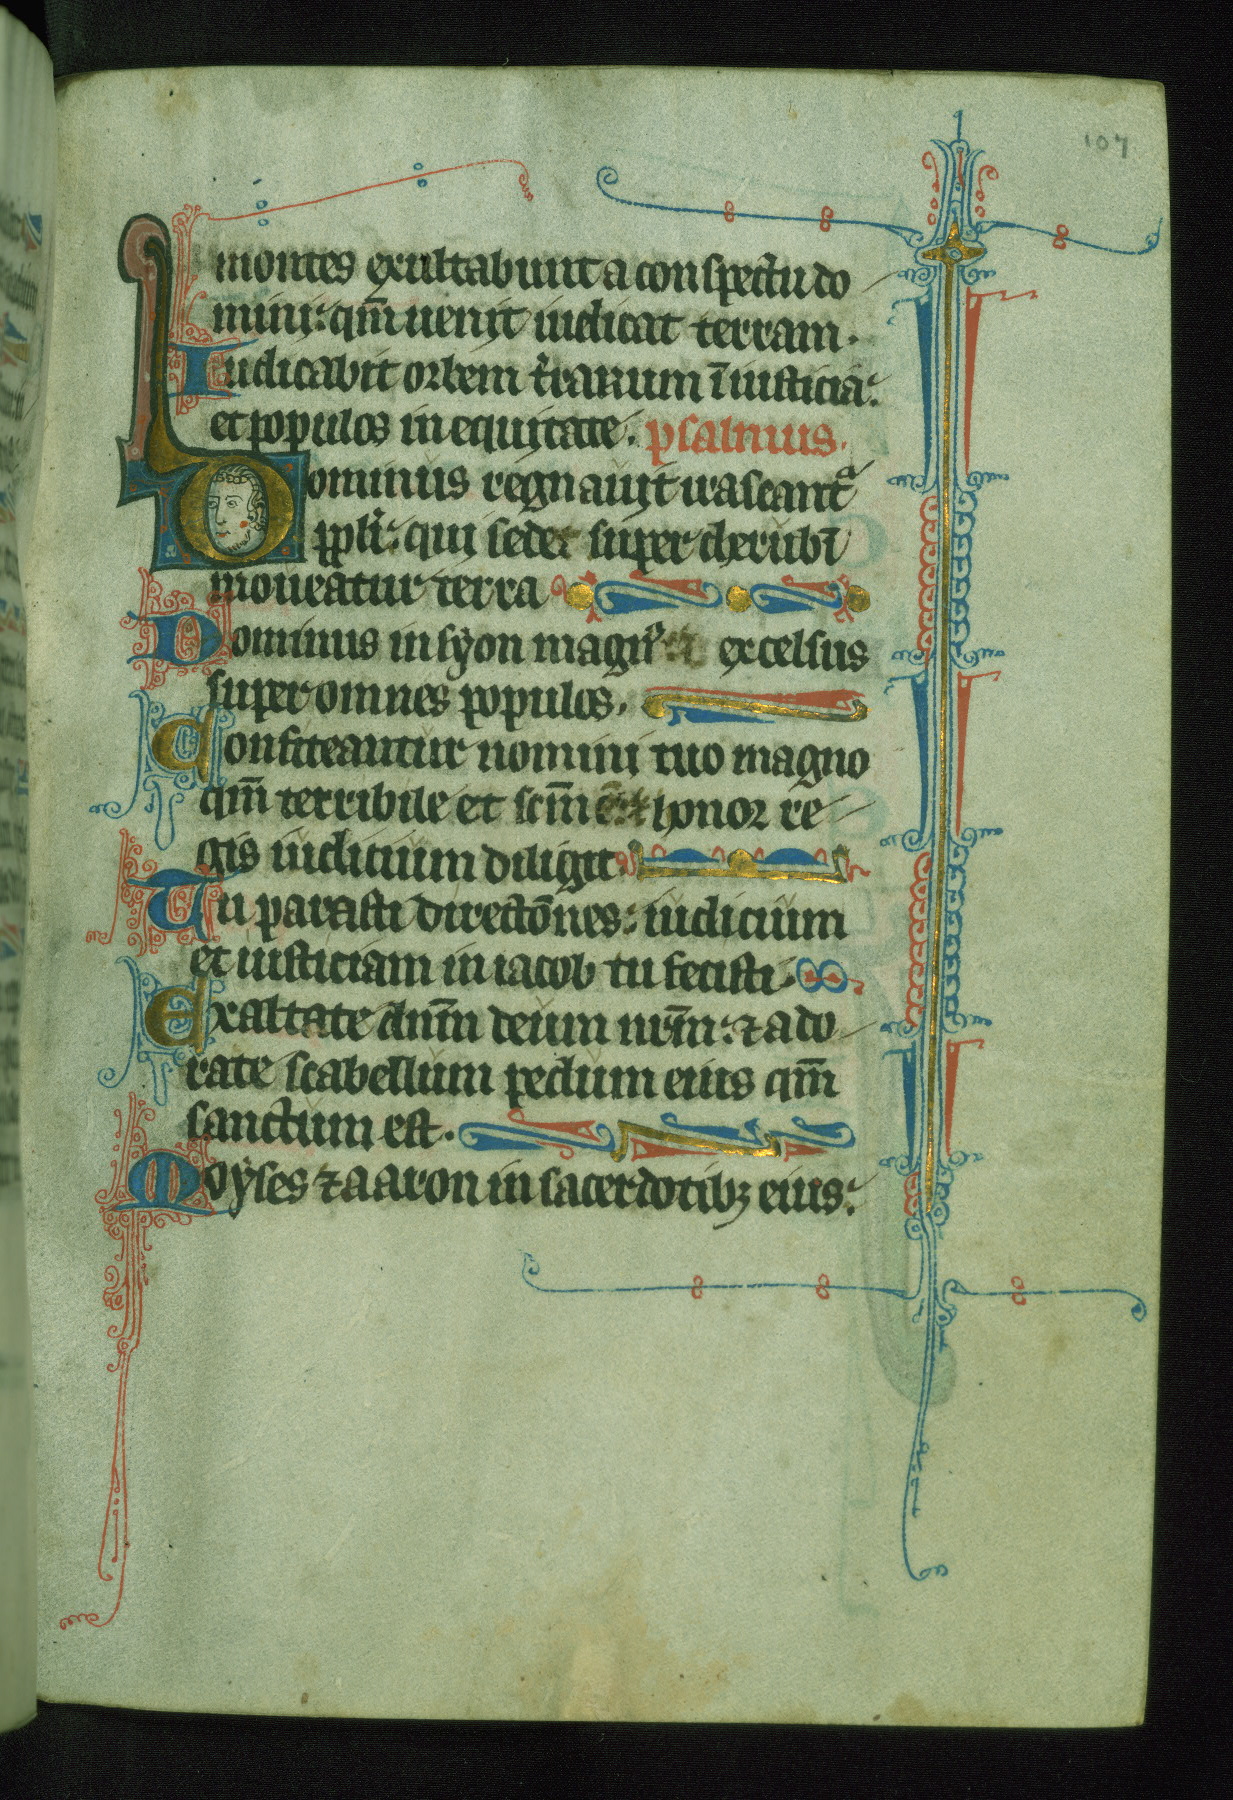 107
montes exultabunt a conspectu do
mini: qm̄ uenit iudicat terram.
Iudicabit orbem t̄rarum ī iusticia:
et populos in equitate. psalmus.
Dominus regnauit irascantᵃ
ppl̄i: qui sedet super cherubī
moueatur terra
Dominus in syon magnꝰ: excelsus
super omnes populos.
Confiteantur nomini tuo magno
qm̄ terribile et scm̄ ē: honor re
gis iudicium diligit
Tu parasti directōnes: iudicium
et iusticiam in iacob tu fecisti.
Exaltate dnm̄ deum nrm̄: ⁊ ado
rate scabellum pedum eius qm̄
sanctum est.
Moyses ⁊ aaron in sacerdotibꝫ eius: